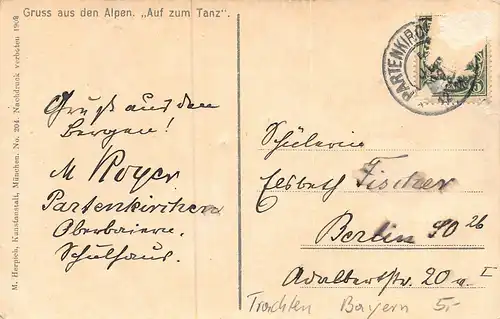 Gruss aus den Alpen. „Auf zum Tanz".
M. Herpich, Kunstanstalt, München. No. 204. Nachdruck verboten 1908
PARTENKIRCH
Gruß aus den
Bergen!
M Royer
Partenkirchen
Oberbaiern.
Schulhaus.
Schülerin
Elsbeth Fischer
Berlin SO 26
Adalbertstr. 20 a I
Trachten Bayern 5.-